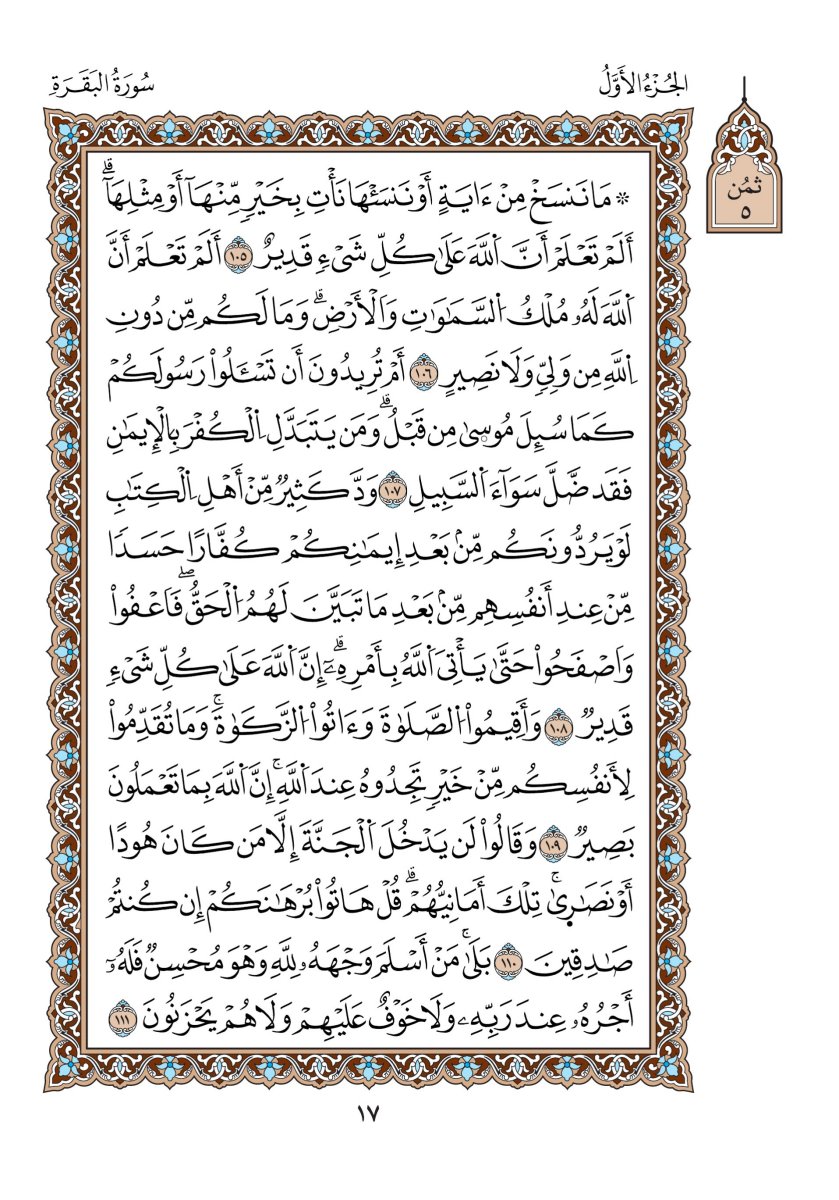 الجُزْءُ الأَوَّلُ
سُورَةُ البَقَرَةِ
ثُمُن
٥
* مَا نَنسَخْ مِنْ ءَايَةٍ أَوْ نَنسَـْٔهَا نَأْتِ بِخَيْرٍ مِّنْهَآ أَوْ مِثْلِهَآۗ
أَلَمْ تَعْلَمْ أَنَّ اَ۬للَّهَ عَلَىٰ كُلِّ شَےْءٍ قَدِيرٌ ١٠٥ أَلَمْ تَعْلَمْ أَنَّ
اَ۬للَّهَ لَهُۥ مُلْكُ اُ۬لسَّمَٰوَٰتِ وَالْأَرْضِۗ وَمَا لَكُم مِّن دُونِ
اِ۬للَّهِ مِن وَلِيٍّ وَلَا نَصِيرٍ ١٠٦ أَمْ تُرِيدُونَ أَن تَسْـَٔلُوا۟ رَسُولَكُمْ
كَمَا سُئِلَ مُوسۭىٰ مِن قَبْلُۗ وَمَن يَتَبَدَّلِ اِ۬لْكُفْرَ بِالْإِيمَٰنِ
فَقَد ضَّلَّ سَوَآءَ اَ۬لسَّبِيلِ ١٠٧ وَدَّ كَثِيرٌ مِّنْ أَهْلِ اِ۬لْكِتَٰبِ
لَوْ يَرُدُّونَكُم مِّنۢ بَعْدِ إِيمَٰنِكُمْ كُفَّارًا حَسَدًا
مِّنْ عِندِ أَنفُسِهِم مِّنۢ بَعْدِ مَا تَبَيَّنَ لَهُمُ اُ۬لْحَقُّۖ فَاعْفُوا۟
وَاصْفَحُوا۟ حَتَّىٰ يَأْتِيَ اَ۬للَّهُ بِأَمْرِهِۦٓۗ إِنَّ اَ۬للَّهَ عَلَىٰ كُلِّ شَےْءٍ
قَدِيرٌ ١٠٨ وَأَقِيمُوا۟ اُ۬لصَّلَوٰةَ وَءَاتُوا۟ اُ۬لزَّكَوٰةَۚ وَمَا تُقَدِّمُوا۟
لِأَنفُسِكُم مِّنْ خَيْرٍ تَجِدُوهُ عِندَ اَ۬للَّهِۚ إِنَّ اَ۬للَّهَ بِمَا تَعْمَلُونَ
بَصِيرٌ ١٠٩ وَقَالُوا۟ لَن يَدْخُلَ اَ۬لْجَنَّةَ إِلَّا مَن كَانَ هُودًا
أَوْ نَصَٰرٜىٰۚ تِلْكَ أَمَانِيُّهُمْۗ قُلْ هَاتُوا۟ بُرْهَٰنَكُمْ إِن كُنتُمْ
صَٰدِقِينَ ١١٠ بَلَىٰۚ مَنْ أَسْلَمَ وَجْهَهُۥ لِلَّهِ وَهْوَ مُحْسِنٌ فَلَهُۥٓ
أَجْرُهُۥ عِندَ رَبِّهِۦ وَلَا خَوْفٌ عَلَيْهِمْ وَلَا هُمْ يَحْزَنُونَ ١١١
١٧